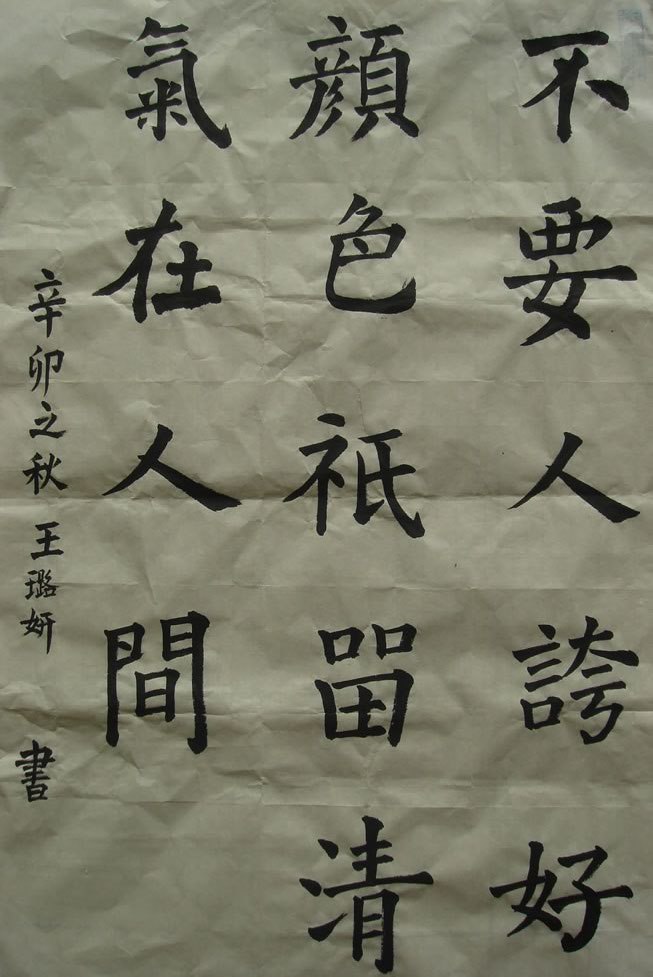 不要人誇好
顏色祇畱清
氣在人間
辛卯之秋 王璐妍 書